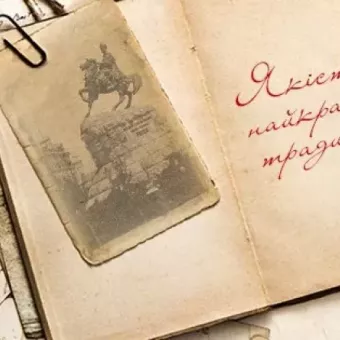 Якіст
найкра
тради